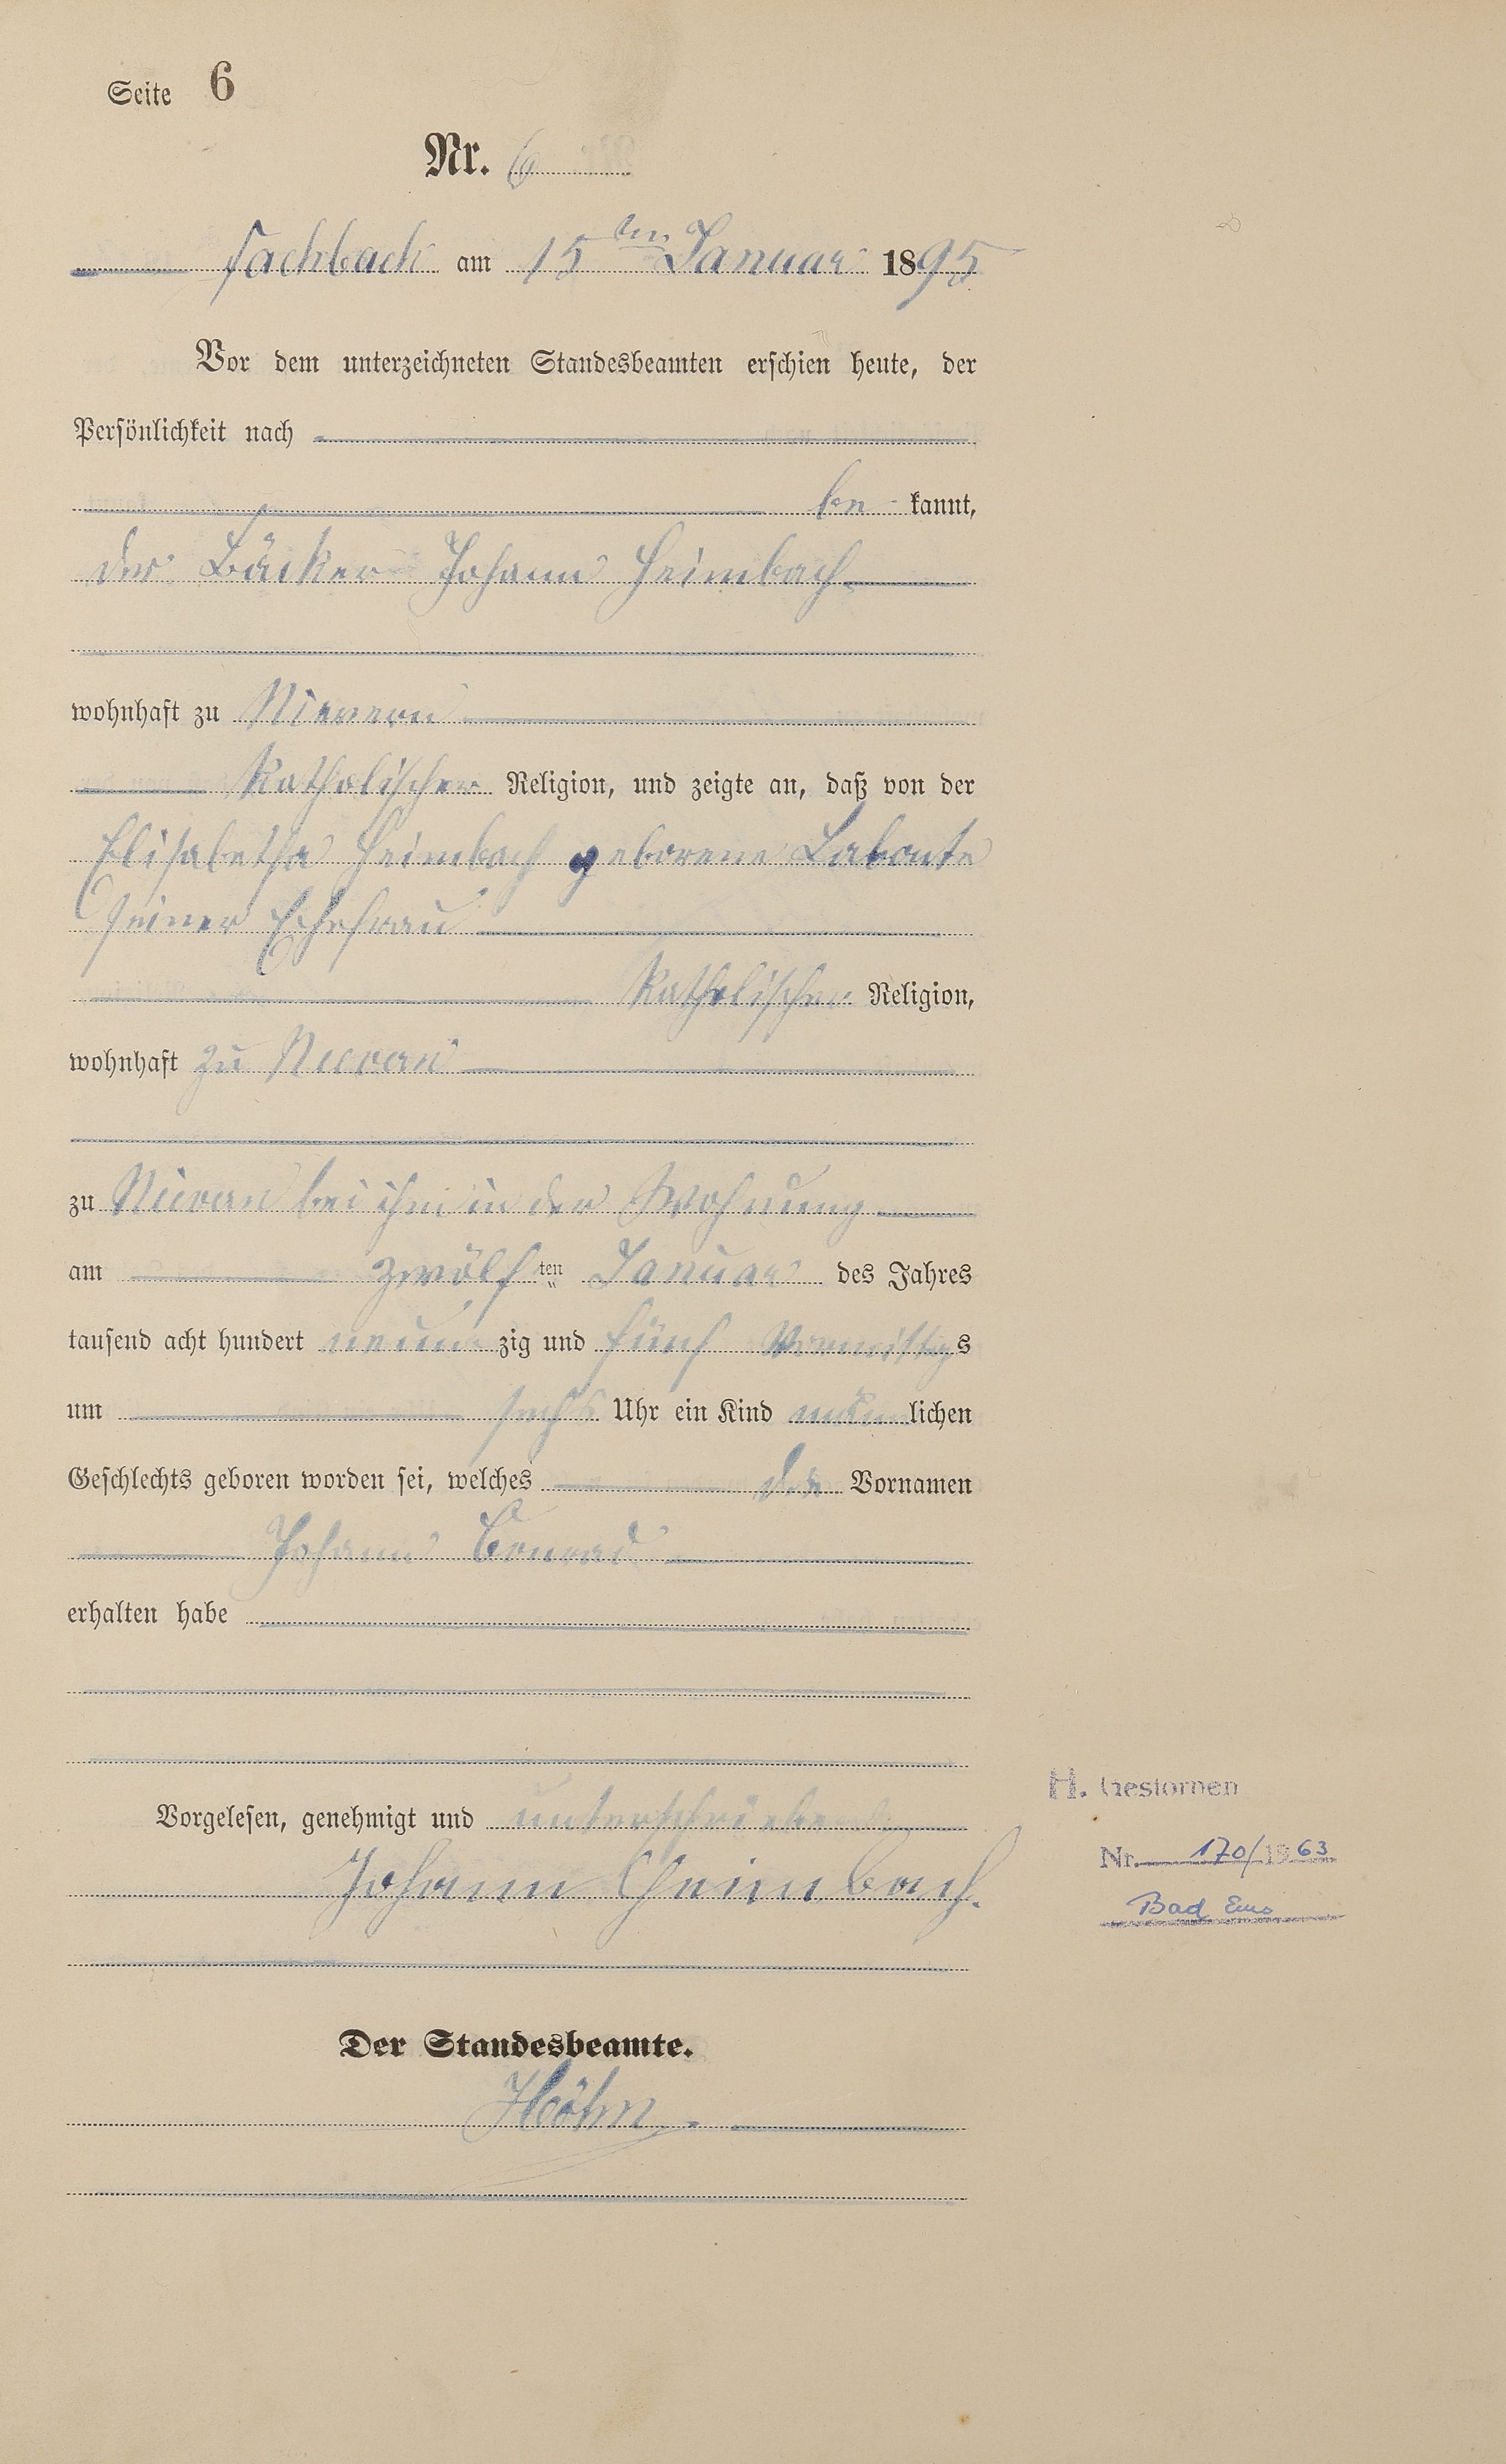 Seite 6
Nr. 6
Fachbach am 15ten Januar 1895
Vor dem unterzeichneten Standesbeamten erschien heute, der
Persönlichkeit nach
be kannt,
der Bäcker Johann Heimbach
wohnhaft zu Nievern
Katholischer Religion, und zeigte an, daß von der
Elisabetha Heimbach geborene Labonte
seiner Ehefrau
Katholischer Religion,
wohnhaft zu Nievern
zu Nievern bei ihm in der Wohnung
am zwölf ten Januar des Jahres
tausend acht hundert neun zig und fünf Vormittags
um sechs Uhr ein Kind männlichen
Geschlechts geboren worden sei, welches die Vornamen
Johann Conrad
erhalten habe
Vorgelesen, genehmigt und unterschrieben
Johann Heimbach.
Der Standesbeamte.
Höhn.
H. Gestorben
Nr. 170/1963
Bad Ems